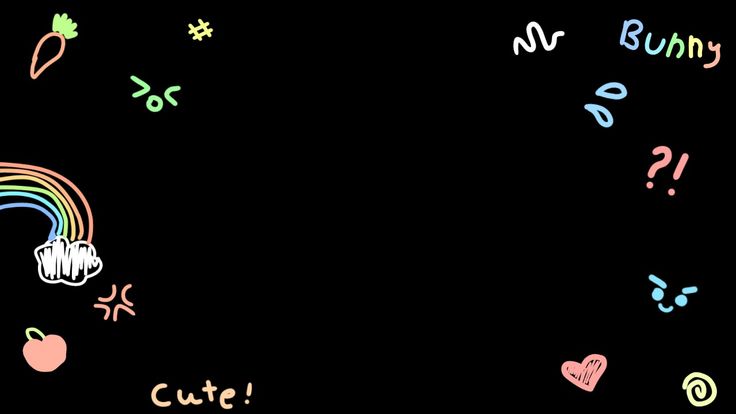 #
Bunny
>o<
?!
Cute!